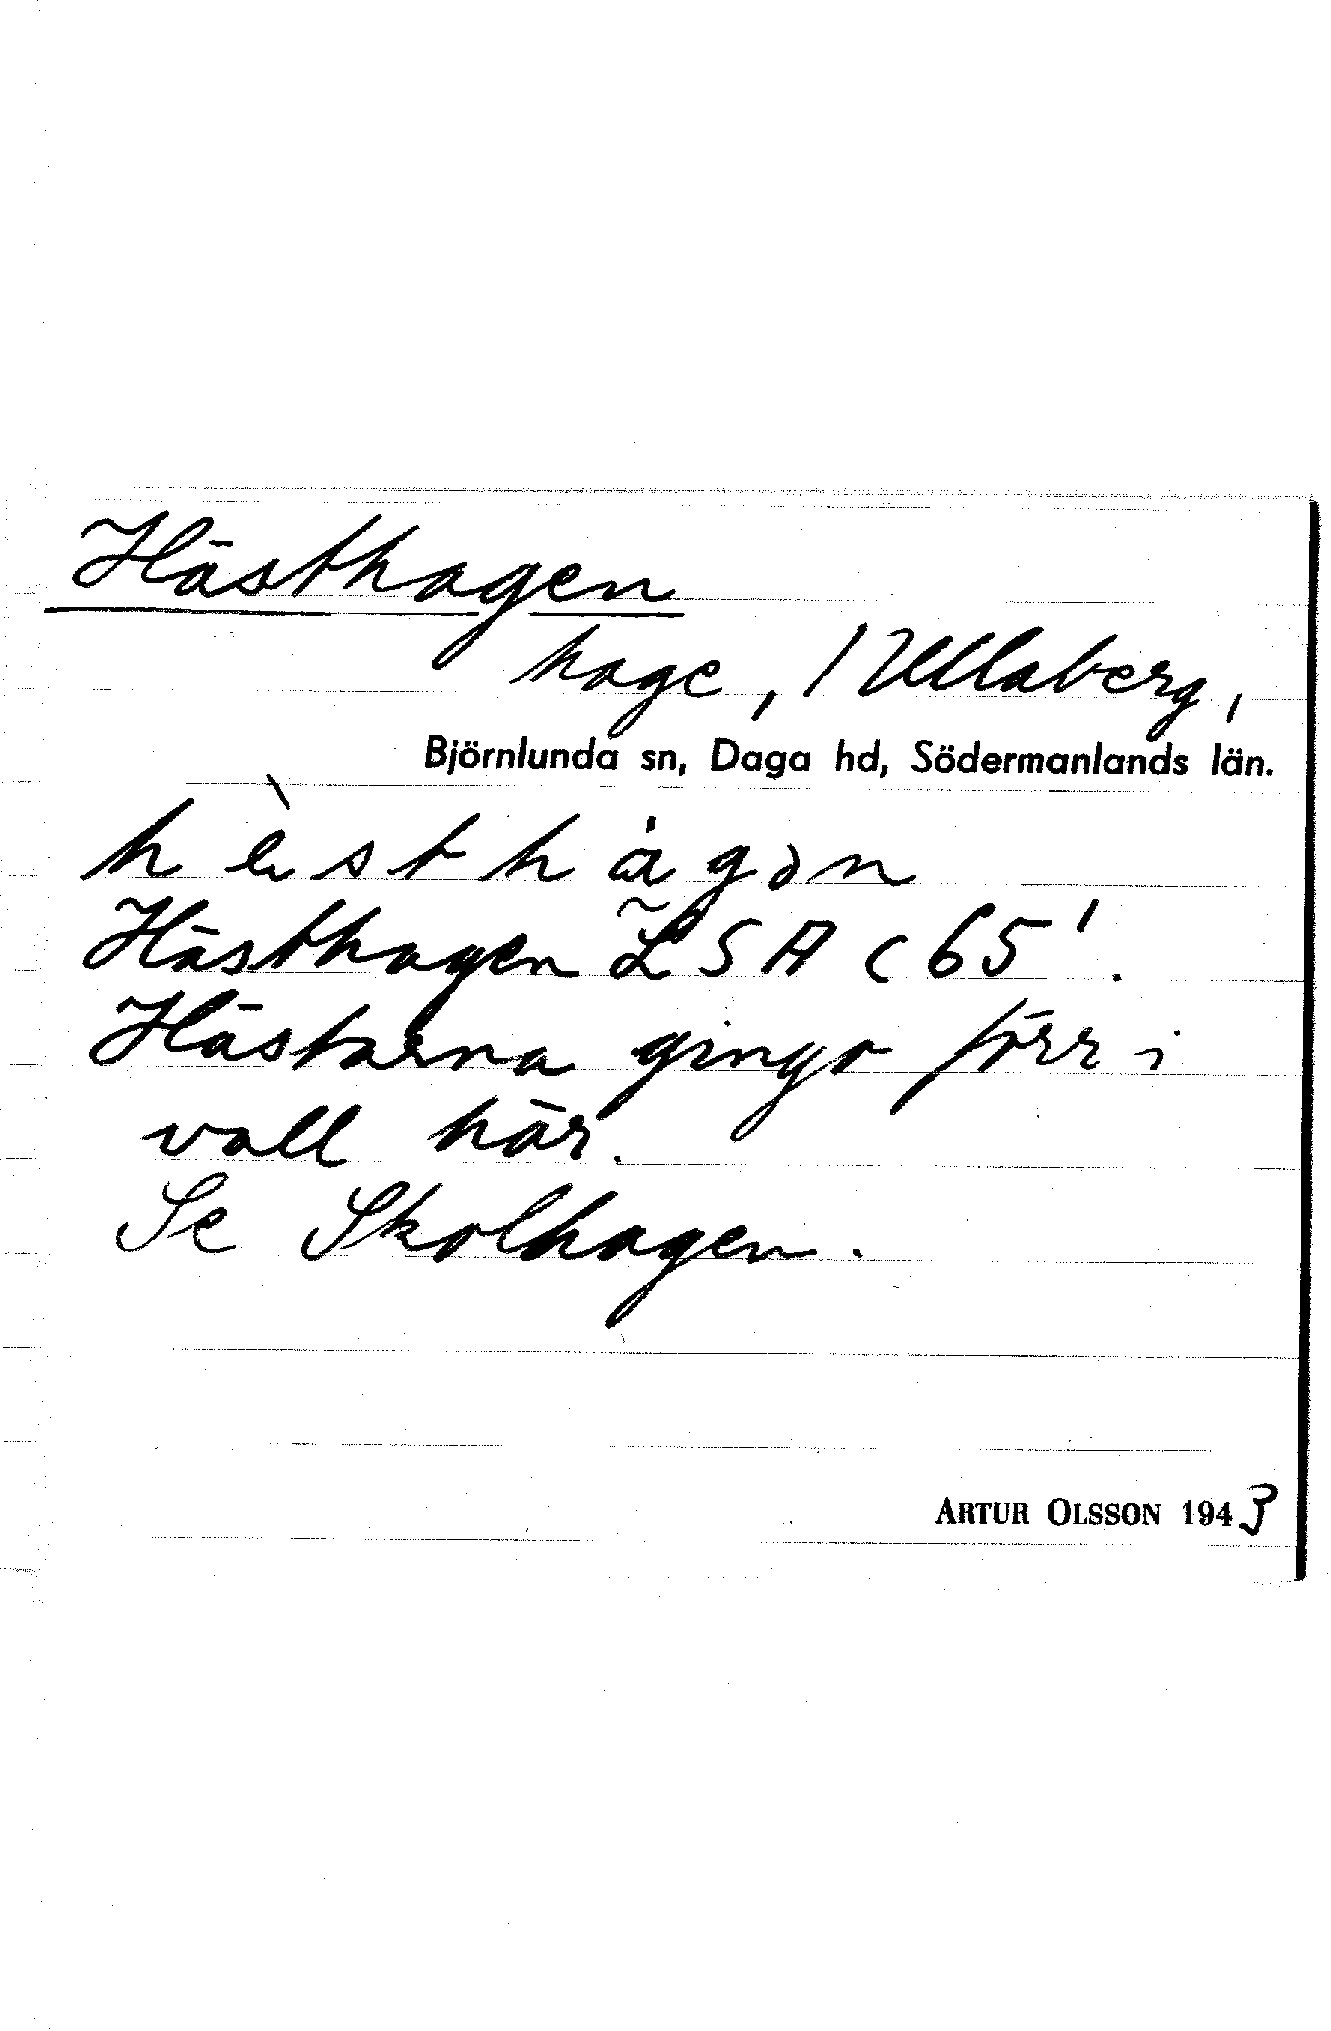 Hästhagen
hage, 1 Ullaberg,
Björnlunda sn, Daga hd, Södermanlands län.
hèsthàgən
Hästhagen LSA c 65'.
Hästarna gingo förr i
vall här.
Se Skolhagen.
ARTUR OLSSON 1943